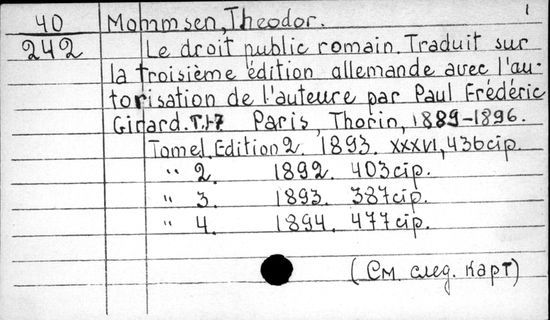 1
40 Mommsen, Theodor.
242 Le droit public romain. Traduit sur
la troisième édition allemande avec l'au-
torisation de l'auteure par Paul Frédéric
Girard. T.1-7 Paris, Thorin, 1889-1896.
Tome 1. Edition 2. 1893. XXXVI, 436 cip.
" 2. 1892. 403 cip.
" 3. 1893. 387 cip.
" 4. 1894. 477 cip.
(См. след. карт)